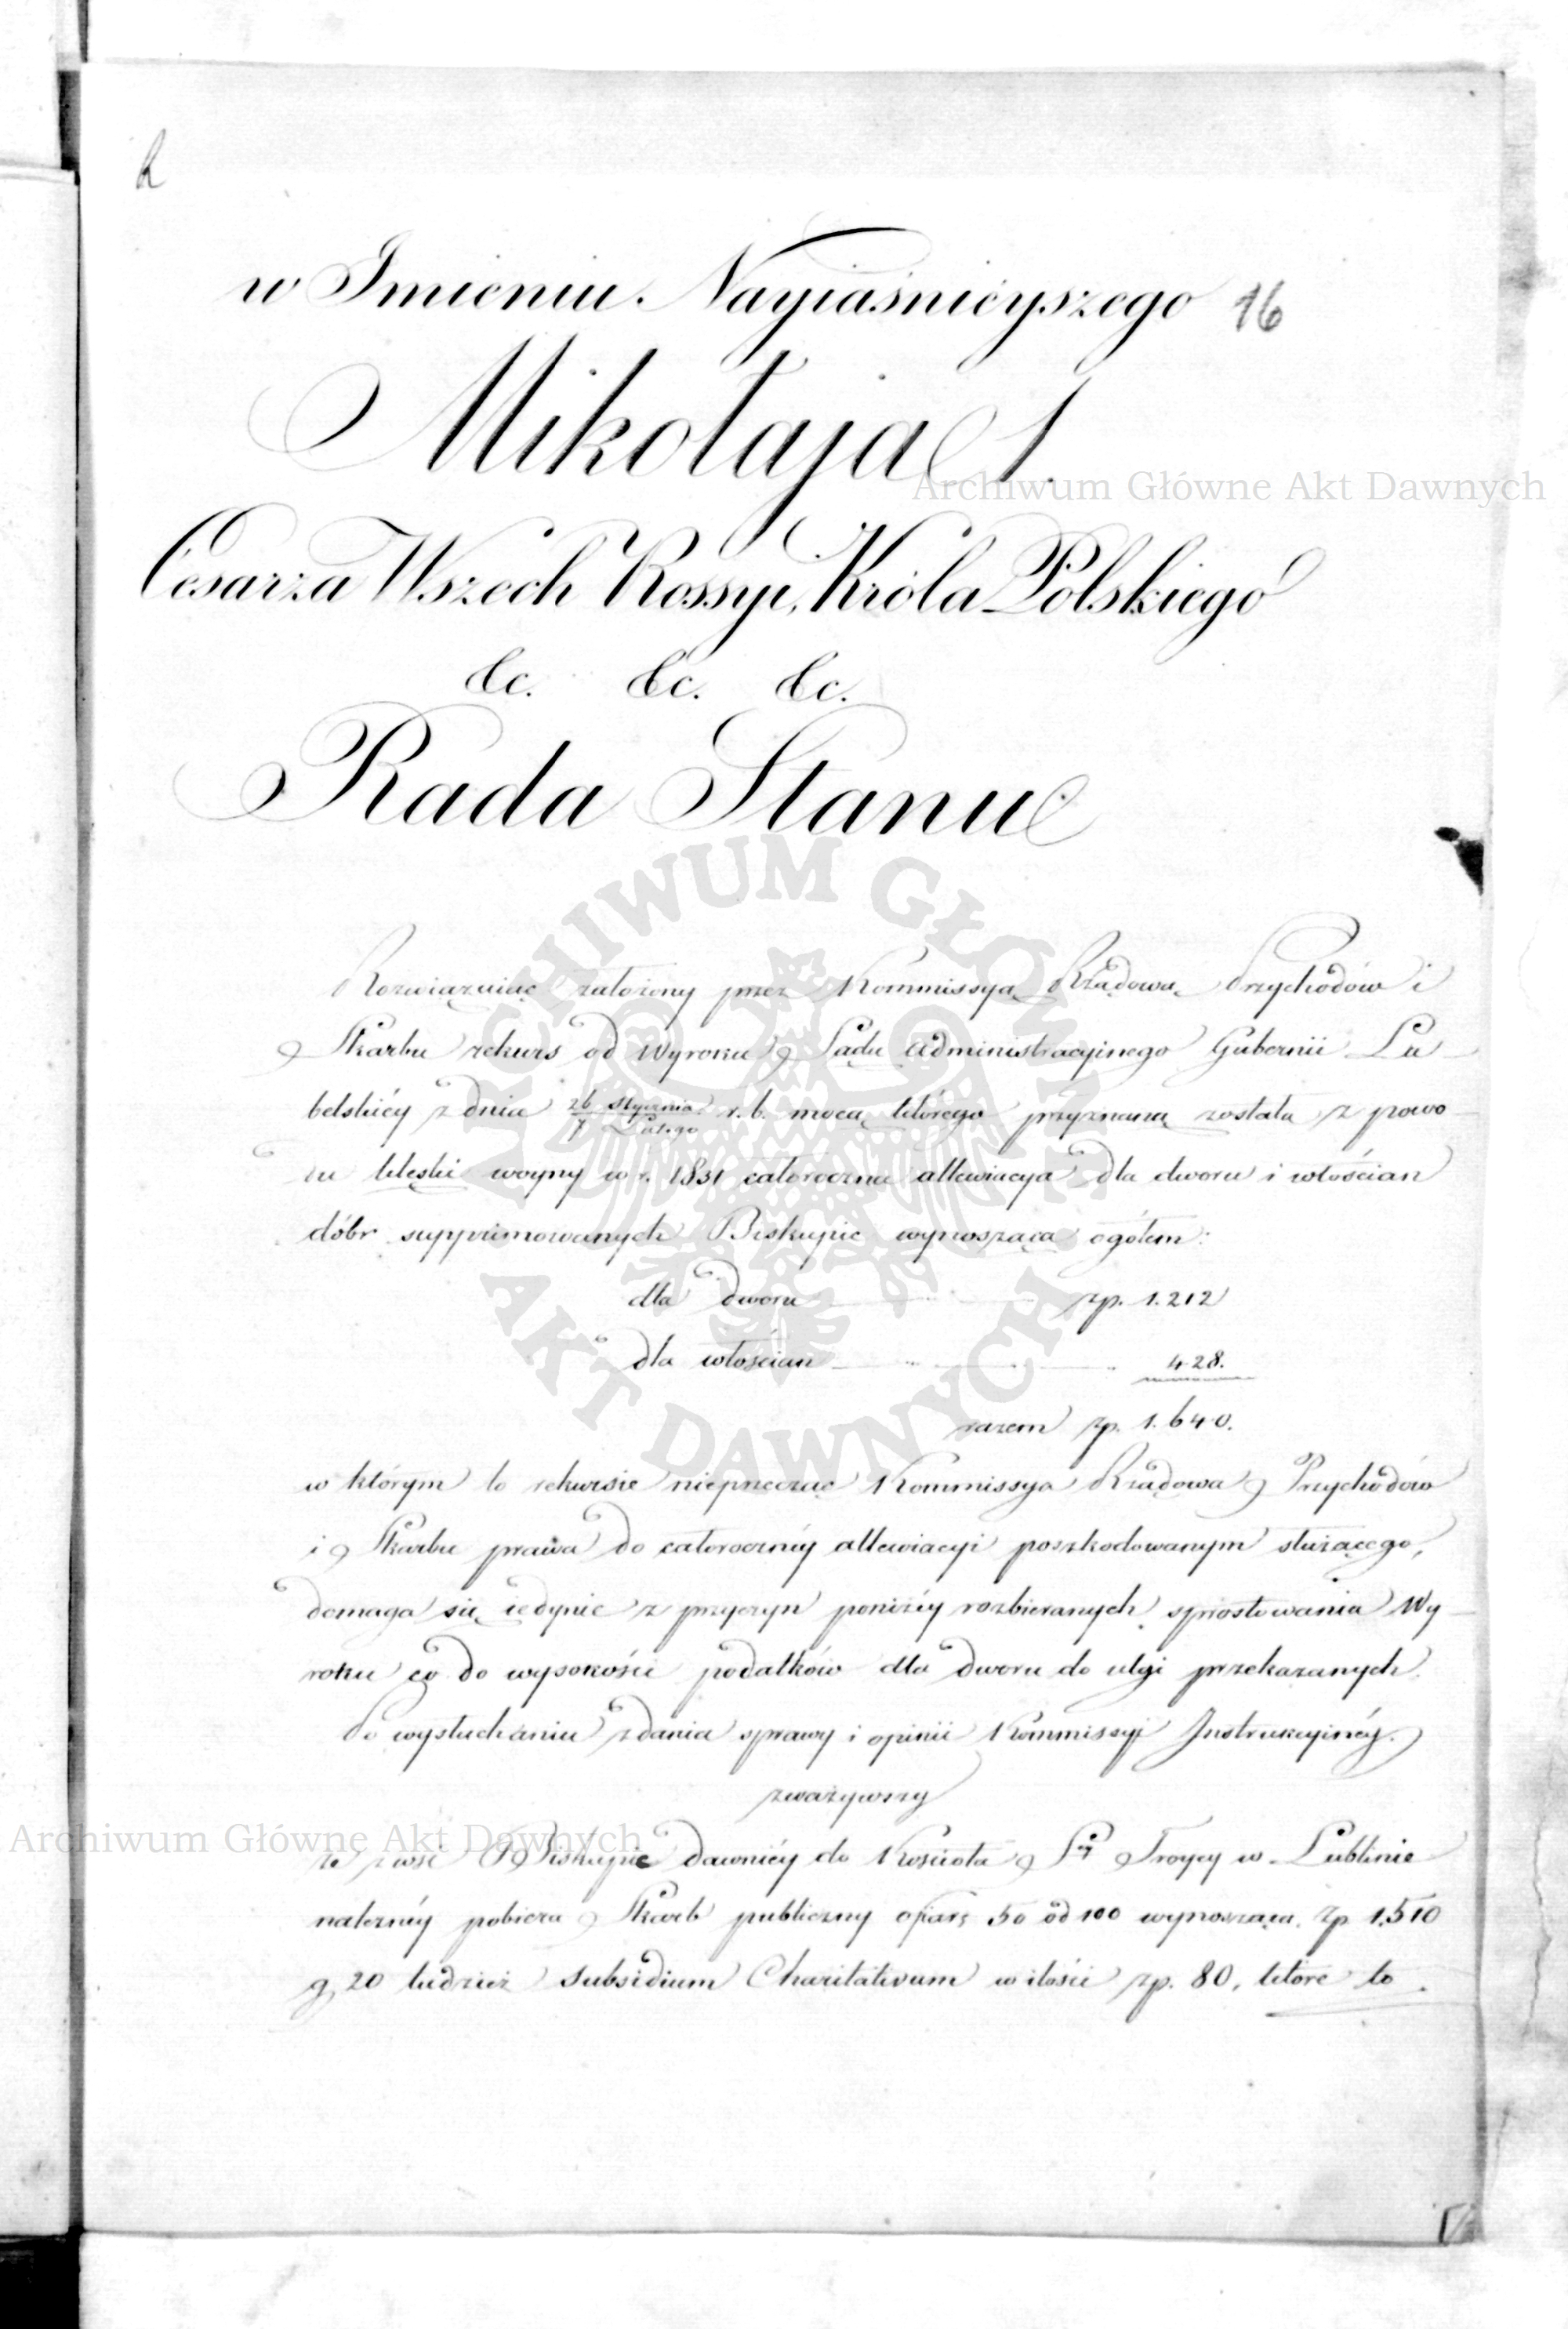 w Imieniu Nayiaśnieyszego 16
Mikołaja I.
Cesarza Wszech Rossyi, Króla Polskiego
&c. &c. &c.
Rada Stanu
Rozwiązuiąc założony przez Kommissyą Rządową Przychodów i
Skarbu rekurs od Wyroku Sądu Administracyinego Gubernii Lu-
belskiéy z dnia 26 Stycznia / 7 Lutego r. b. mocą którego przyznaną została z powo-
du klęski woyny w r. 1831 całoroczna allewiacya dla dworu i włościan
dóbr supprimowanych Biskupie wynosząca ogółem:
dla dworu zp. 1.212
dla włościan 428.
razem zp. 1.640.
w którym to rekursie nieprzecząc Kommissya Rządowa Przychodów
i Skarbu prawa do całorocznéy allewiacyi poszkodowanym służącego,
domaga się iedynie z przyczyn poniżéy rozbieranych, sprostowania Wy-
roku co do wysokości podatków dla dworu do ulgi przekazanych.
Po wysłuchaniu zdania sprawy i opinii Kommissyi Instrukcyinéy.
zważywszy
że z wsi Biskupie dawniéy do Kościoła Sej Troycy w Lublinie
należnéy pobiera Skarb publiczny ofiarę 50 od 100 wynoszącą zp 1,510
g 20 tudzież Subsidium Charitativum w ilości zp. 80, które to
Archiwum Główne Akt Dawnych
ARCHIWUM GŁÓWNE AKT DAWNYCH
Archiwum Główne Akt Dawnych